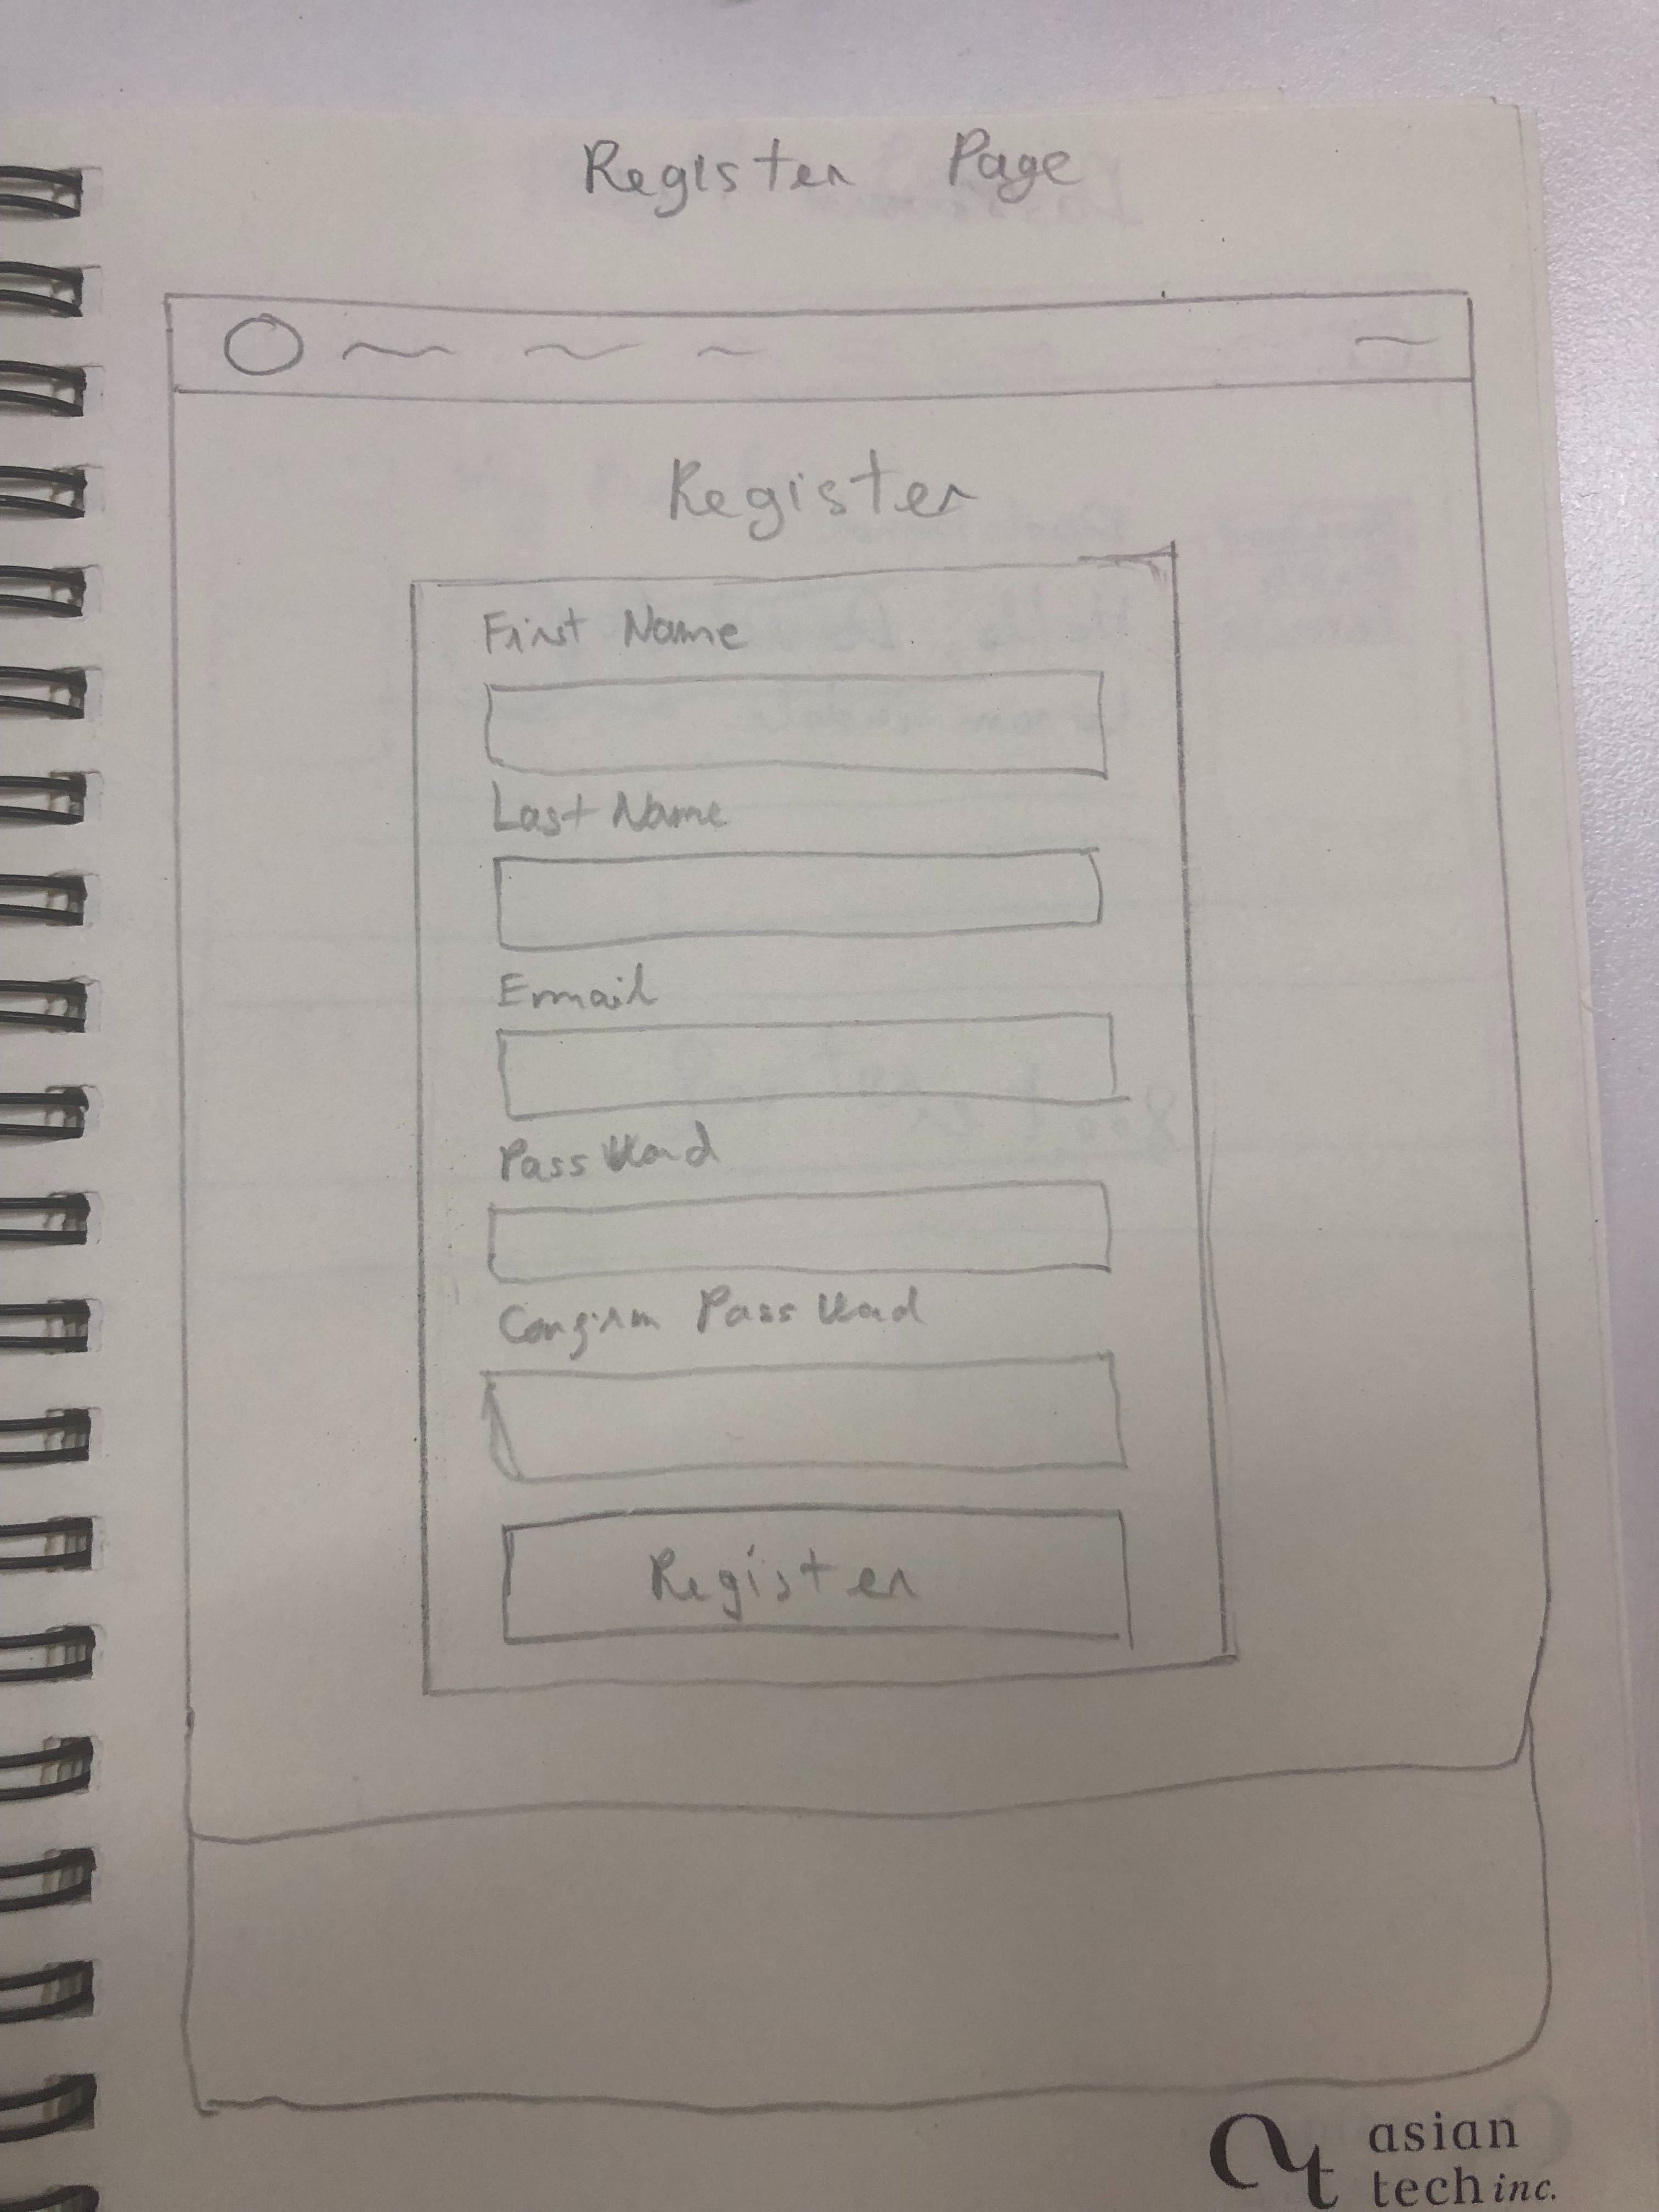 Register Page
Register
First Name
Last Name
Email
Password
Confirm Password
Register
asian
tech inc.